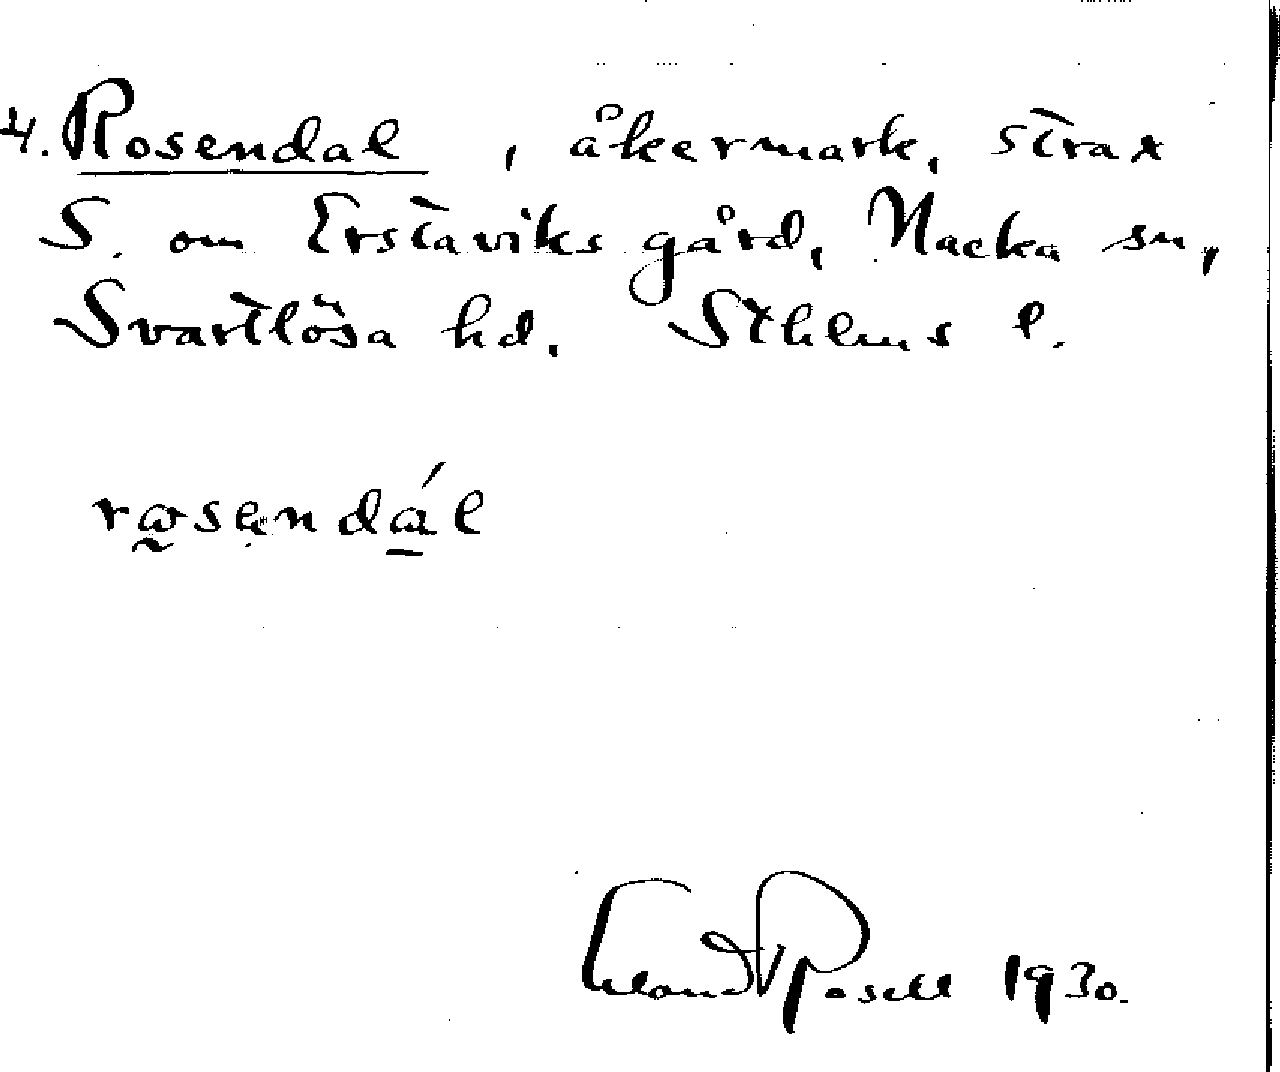 4. Rosendal, åkermark, strax
S. om Erstaviks gård, Nacka sn,
Svartlösa hd. Sthlms l.
rosendál
Rosell 1930.